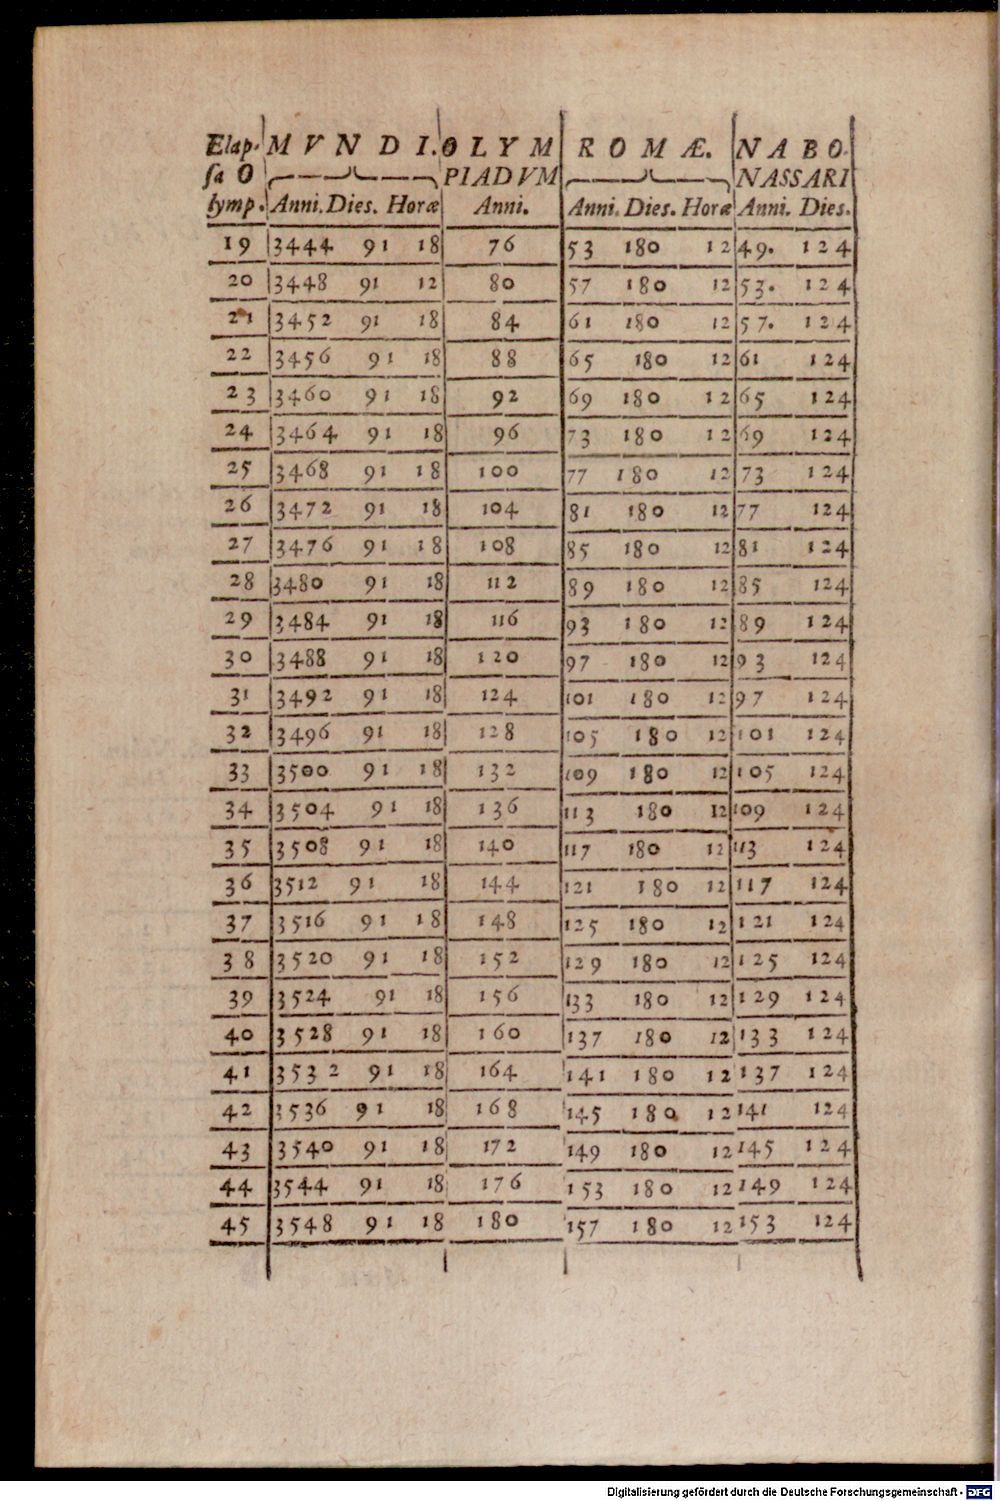 Elap- M V N D I. O L Y M R O M Æ. N A B O-
ſa O PIADVM NASSARI
lymp. Anni. Dies. Horæ Anni. Anni. Dies. Horæ Anni. Dies.
19 3444 91 18 76 53 180 12 49. 124
20 3448 91 12 80 57 180 12 53. 124
21 3452 91 18 84 61 180 12 57. 124
22 3456 91 18 88 65 180 12 61 124
23 3460 91 18 92 69 180 12 65 124
24 3464 91 18 96 73 180 12 69 124
25 3468 91 18 100 77 180 12 73 124
26 3472 91 18 104 81 180 12 77 124
27 3476 91 18 108 85 180 12 81 124
28 3480 91 18 112 89 180 12 85 124
29 3484 91 18 116 93 180 12 89 124
30 3488 91 18 120 97 180 12 93 124
31 3492 91 18 124 101 180 12 97 124
32 3496 91 18 128 105 180 12 101 124
33 3500 91 18 132 109 180 12 105 124
34 3504 91 18 136 113 180 12 109 124
35 3508 91 18 140 117 180 12 113 124
36 3512 91 18 144 121 180 12 117 124
37 3516 91 18 148 125 180 12 121 124
38 3520 91 18 152 129 180 12 125 124
39 3524 91 18 156 133 180 12 129 124
40 3528 91 18 160 137 180 12 133 124
41 3532 91 18 164 141 180 12 137 124
42 3536 91 18 168 145 180 12 141 124
43 3540 91 18 172 149 180 12 145 124
44 3544 91 18 176 153 180 12 149 124
45 3548 91 18 180 157 180 12 153 124
Digitalisierung gefördert durch die Deutsche Forschungsgemeinschaft - DFG